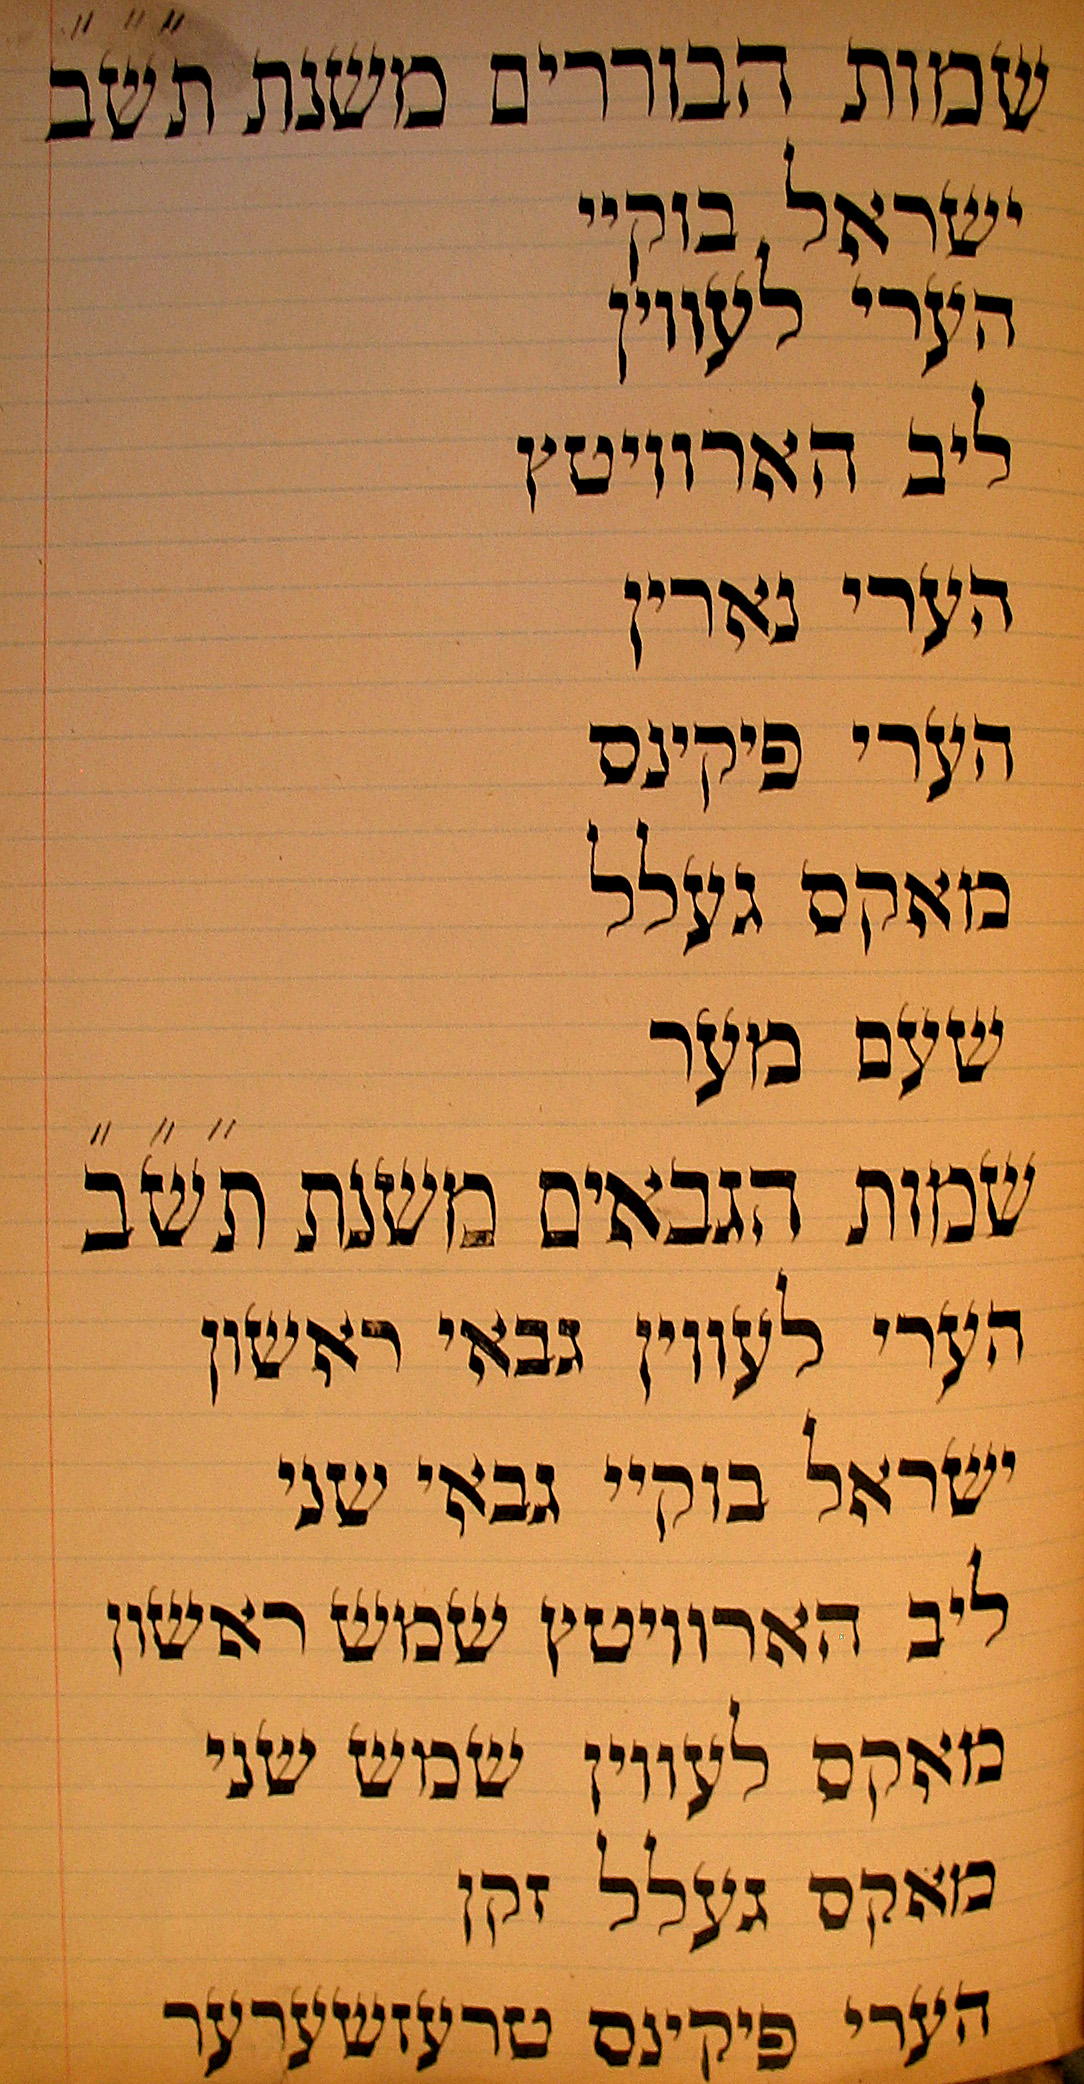 שמות הבוררים משנת ת״ש״ב״
ישראל בוקיי
הערי לעווין
ליב הארוויטץ
הערי נארין
הערי פיקינס
מאקס געלל
שעם מער
שמות הגבאים משנת ת״ש״ב״
הערי לעווין גבאי ראשון
ישראל בוקיי גבאי שני
ליב הארוויטץ שמש ראשון
מאקס לעווין שמש שני
מאקס געלל זקן
הערי פיקינס טרעזשערער